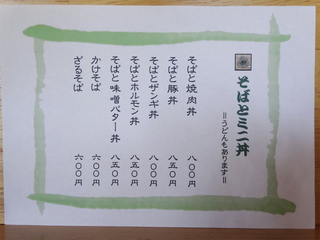 そばとミニ丼
＝うどんもあります＝
そばと焼肉丼 八〇〇円
そばと豚丼 八五〇円
そばとザンギ丼 八〇〇円
そばとホルモン丼 八五〇円
そばと味噌バター丼 八五〇円
かけそば 六〇〇円
ざるそば 六〇〇円